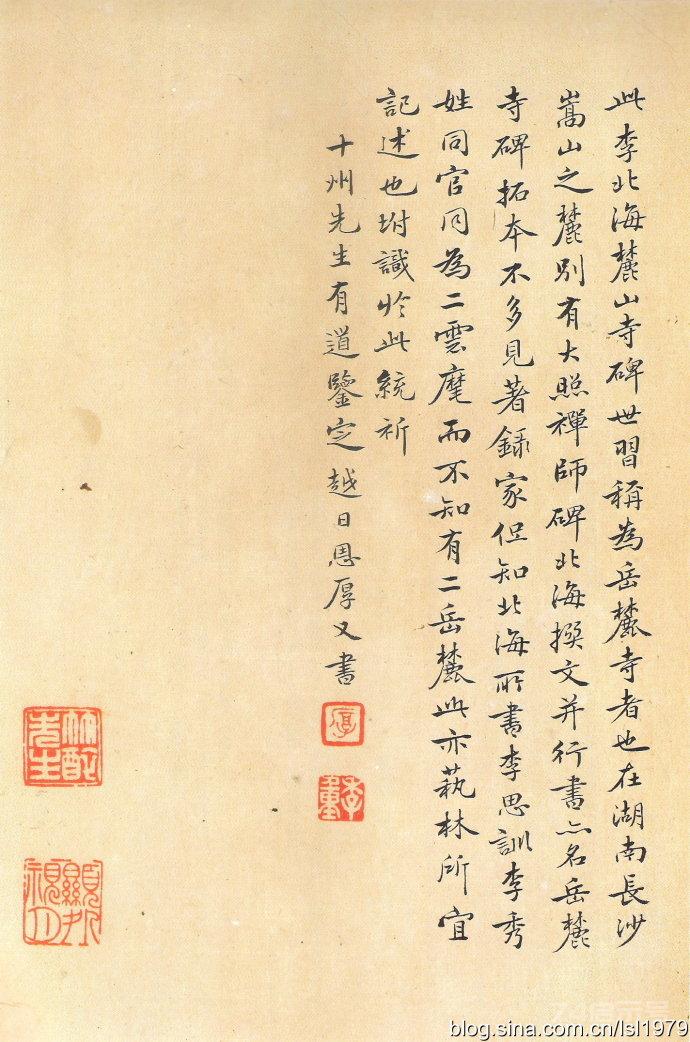 此李北海麓山寺碑世習稱為岳麓寺者也在湖南長沙
嵩山之麓別有大照禪師碑北海撰文并行書亦名岳麓
寺碑拓本不多見著錄家但知北海所書李思訓李秀
姓同官同為二雲麾而不知有二岳麓此亦藝林所宜
記述也坿識於此統祈
十州先生有道鑒定越日恩厚又書
厚
季童
blog.sina.com.cn/lsl1979